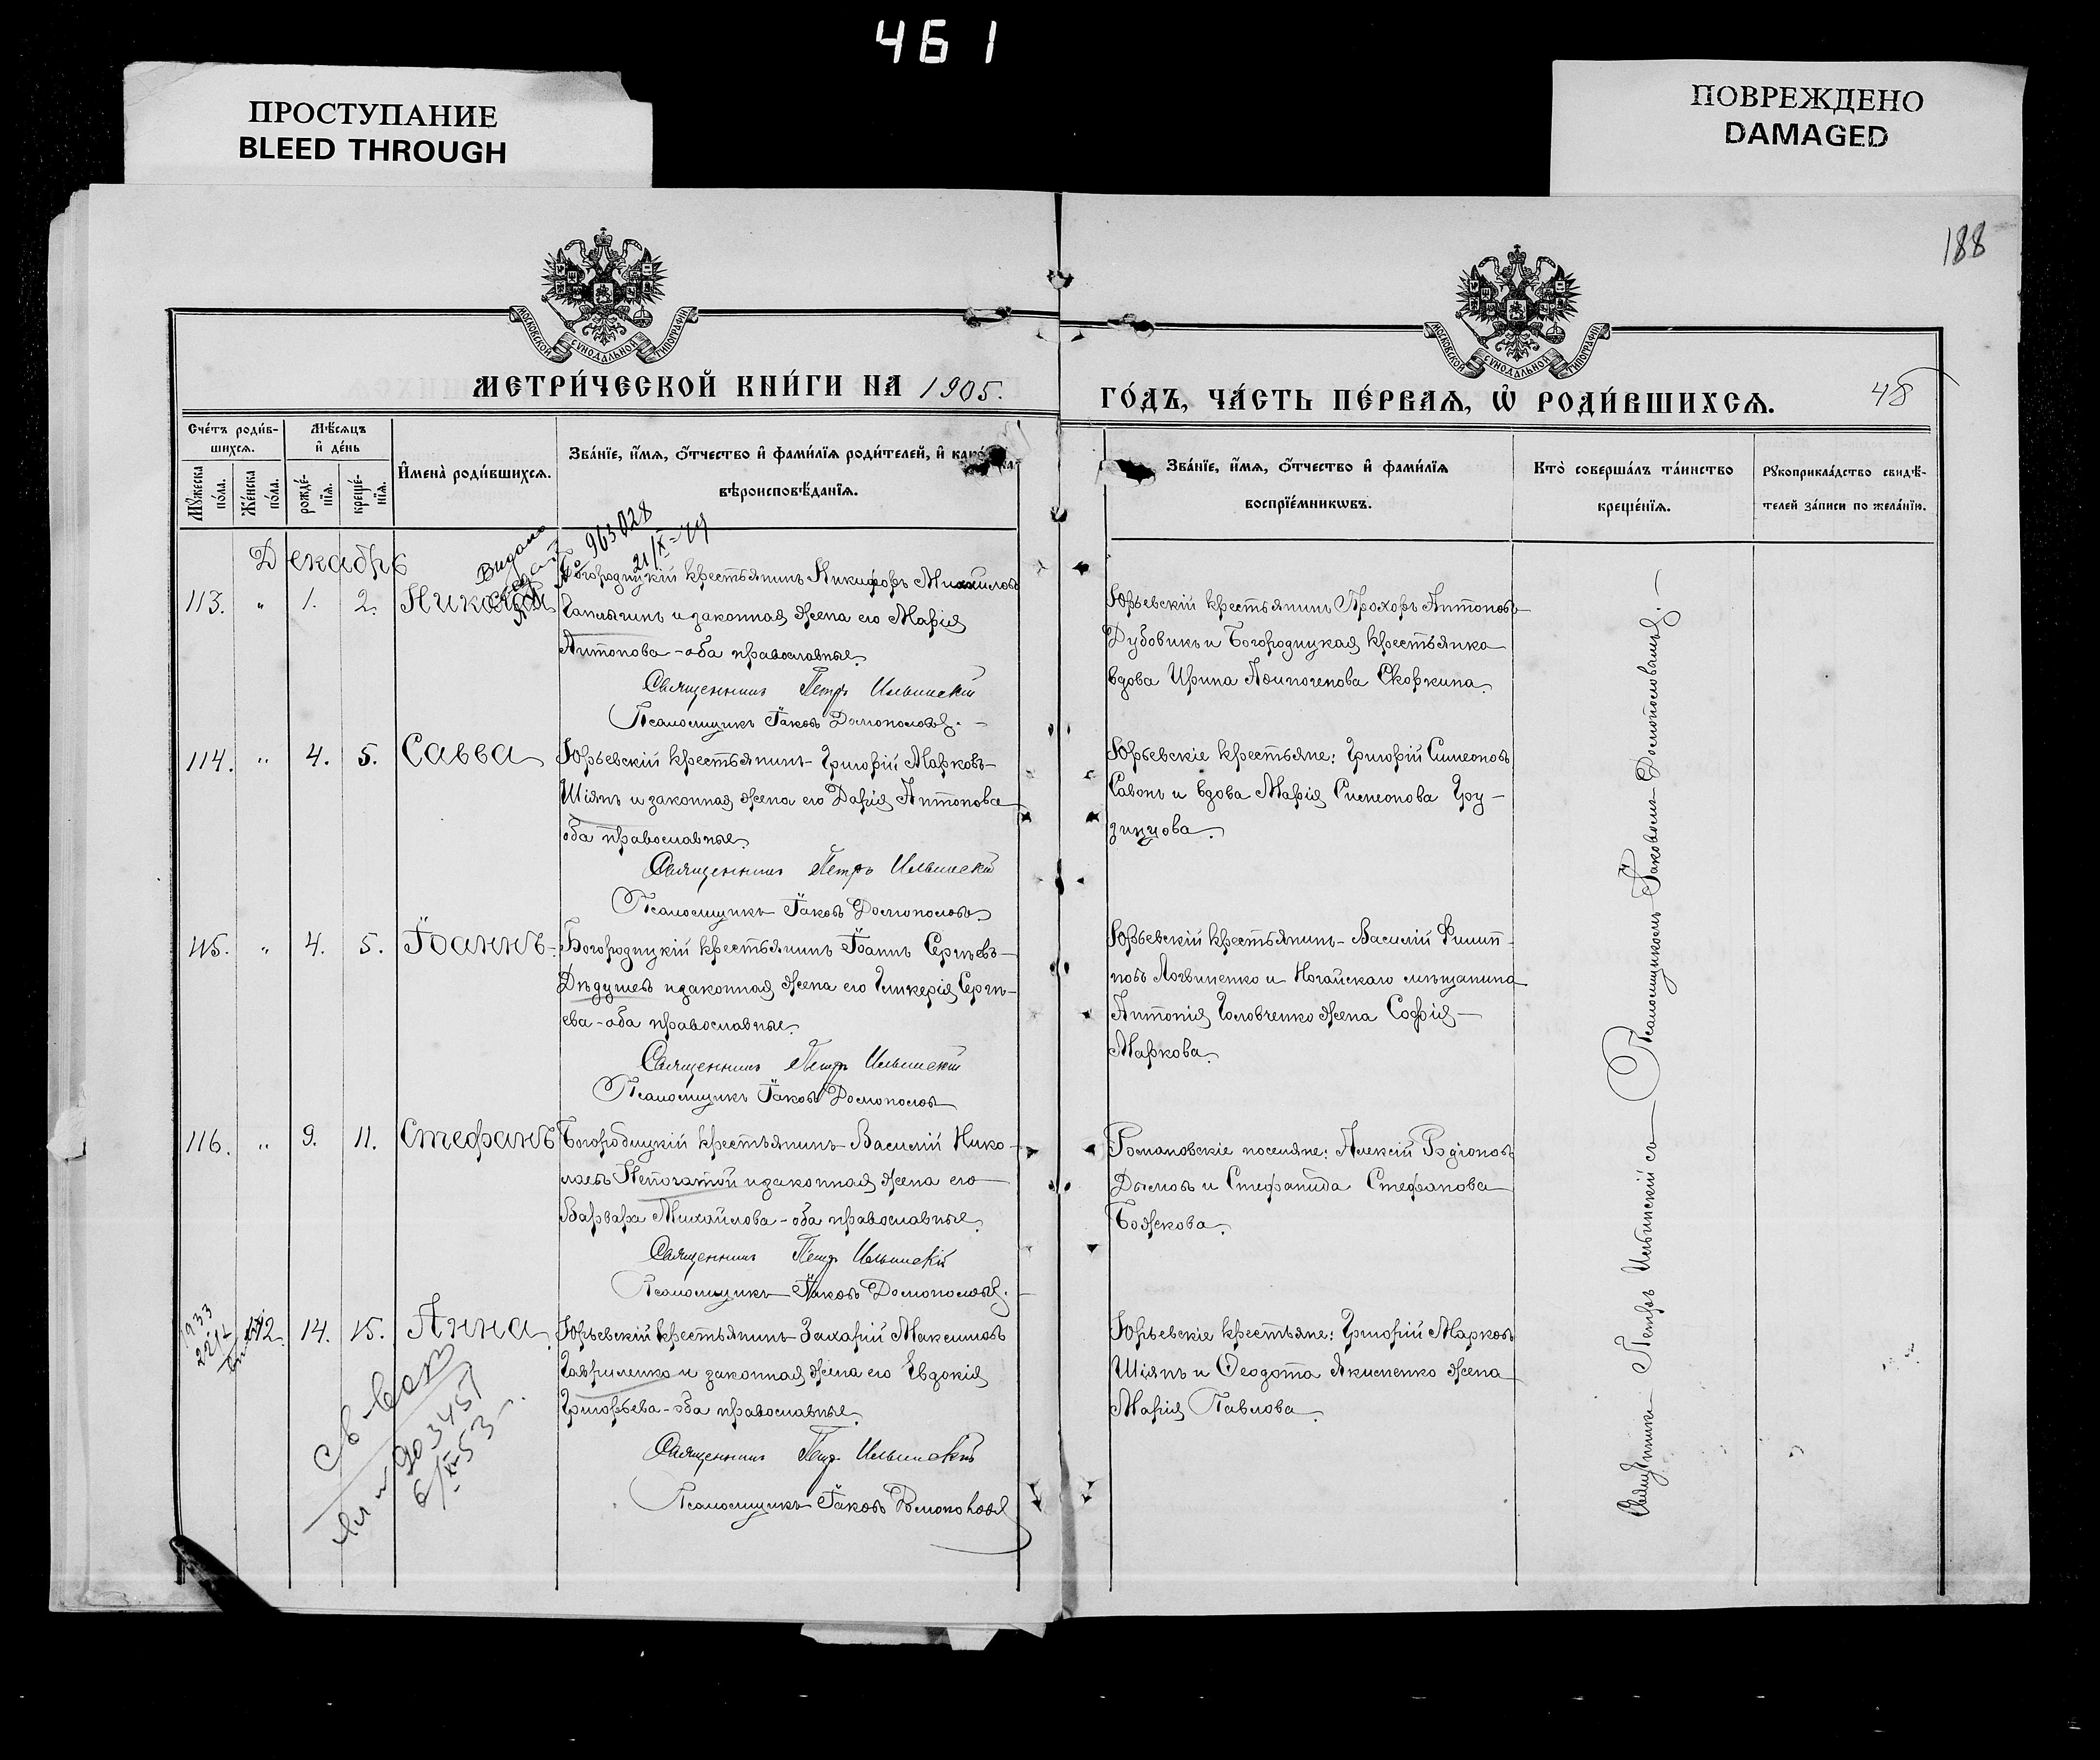 461
ПРОСТУПАНИЕ
BLEED THROUGH
ПОВРЕЖДЕНО
DAMAGED
188
МОСКОВСКОЙ СѴНОДАЛЬНОЙ ТИПОГРАФІИ
МОСКОВСКОЙ СѴНОДАЛЬНОЙ ТИПОГРАФІИ
МЕТРИ́ЧЕСКОЙ КНИ́ГИ НА 1905.
ГО́ДЪ, ЧА́СТЬ ПЕ́РВАѦ, Ѡ҆ РОДИ́ВШИХСѦ.
48
Сче́тъ роди́в-
шихсѧ.
Мѣ́сѧцъ
и҆ де́нь
Мꙋ́жеска
по́ла.
Же́нска
по́ла.
рожде́-
нїѧ.
креще́-
нїѧ.
И҆мена̀ роди́вшихсѧ.
Зва́нїе, и҆́мѧ, ѻ҆́тчество и҆ фами́лїѧ роди́телей, и҆
вѣроисповѣ́данїѧ.
Зва́нїе, и҆́мѧ, ѻ҆́тчество и҆ фами́лїѧ
воспрїе́мникѡвъ.
Кто̀ соверша́лъ та́инство
креще́нїѧ.
Рꙋкоприкла́дство свидѣ́-
телей за́писи по жела́нїю.
Декабрь
963028
21/X-49
113. " 1. 2. Николай
Богородицкій крестьянинъ Никифоръ Михаиловъ
Чаплыгинъ и законная жена его Марія
Антонова - оба православные.
Священникъ Петръ Ильинскій
Псаломщикъ Іаковъ
Юрьевскій крестьянинъ Прохоръ Антоновъ
Дубовикъ и Богородицкая крестьянка
вдова Ирина Скоркина.
114. " 4. 5. Савва
Юрьевскій крестьянинъ Григорій Марковъ
Шіянъ и законная жена его Дарія Антонова
оба православные.
Священникъ Петръ Ильинскій
Псаломщикъ Іаковъ
Юрьевскіе крестьяне: Григорій Симеоновъ
Савонъ и вдова Марія Симеонова Гру-
зинцова.
115. " 4. 5. Іоаннъ
Богородицкій крестьянинъ Іоаннъ Сергѣевъ
Дѣдушевъ и законная жена его Гликерія Сергѣ-
ева - оба православные.
Священникъ Петръ Ильинскій
Псаломщикъ Іаковъ
Юрьевскій крестьянинъ Василій Филип-
повъ Логвиненко и Ногайскаго мѣщанина
Антонія Головченко жена Софія
Маркова.
116. " 9. 11. Стефанъ
Богородицкій крестьянинъ Василій Нико-
лаевъ Непочатой и законная жена его
Варвара Михайлова - оба православные.
Священникъ Петръ Ильинскій
Псаломщикъ Іаковъ
Романовскіе поселяне: Алексій Родіоновъ
Дымовъ и Стефанида Стефанова
Божкова.
1933
112. 14. 15. Анна
Юрьевскій крестьянинъ Захарій Максимовъ
Гавриленко и законная жена его Евдокія
Григорьева - оба православные.
Священникъ Петръ Ильинскій
Псаломщикъ Іаковъ
Юрьевскіе крестьяне: Григорій Марковъ
Шіянъ и Ѳеодота Якименко жена
Марія Павлова.
903451
6/XI-53
Священникъ Петръ Ильинскій съ Псаломщикомъ Іаковомъ